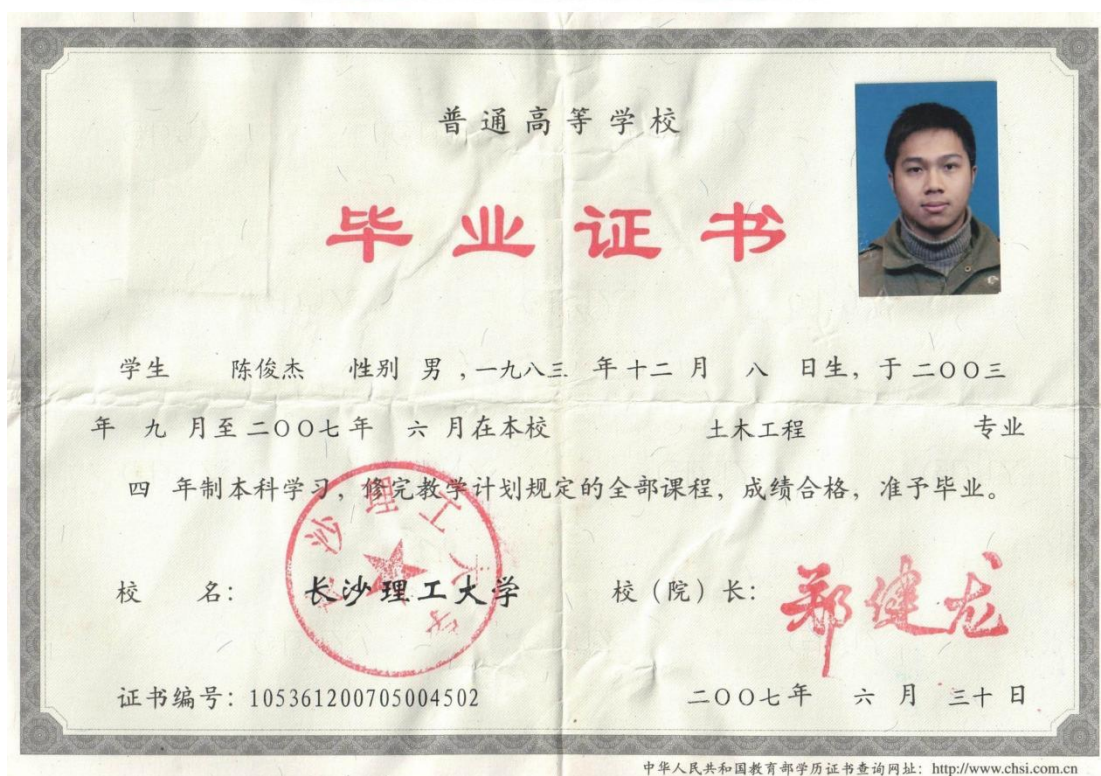 普通高等学校
毕业证书
学生 陈俊杰 性别 男 ,一九八三 年十二 月 八 日生, 于二〇〇三
年 九 月至二〇〇七年 六 月在本校 土木工程 专业
四 年制本科学习, 修完教学计划规定的全部课程, 成绩合格, 准予毕业。
长沙理工大学
校 名: 长沙理工大学 校(院)长: 郑健龙
证书编号: 105361200705004502 二〇〇七年 六 月 三十 日
中华人民共和国教育部学历证书查询网址: http://www.chsi.com.cn